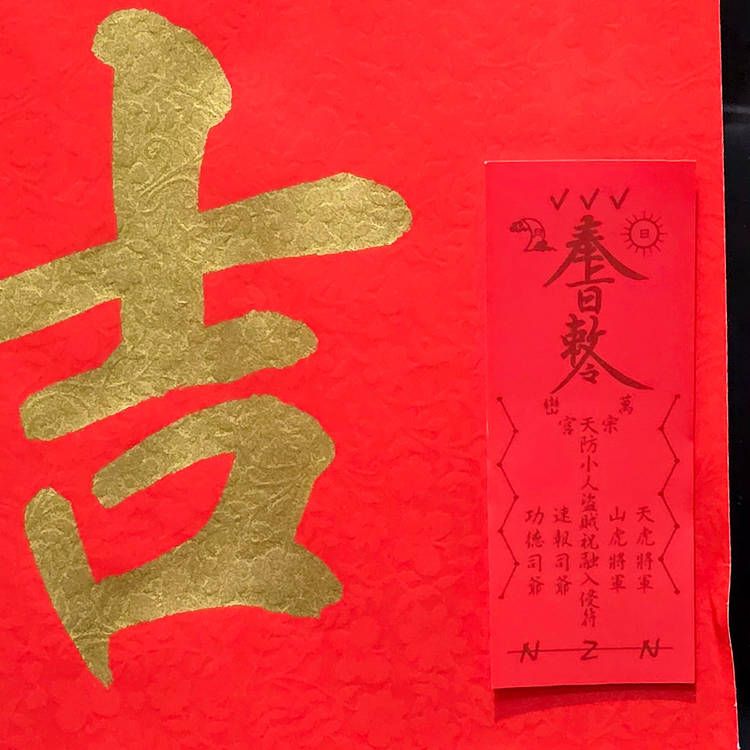 吉
日
奉旨敕令
萬巒
宗天宮
防小人盜賊祝融入侵符
天虎將軍
山虎將軍
速報司爺
功德司爺
N Z N